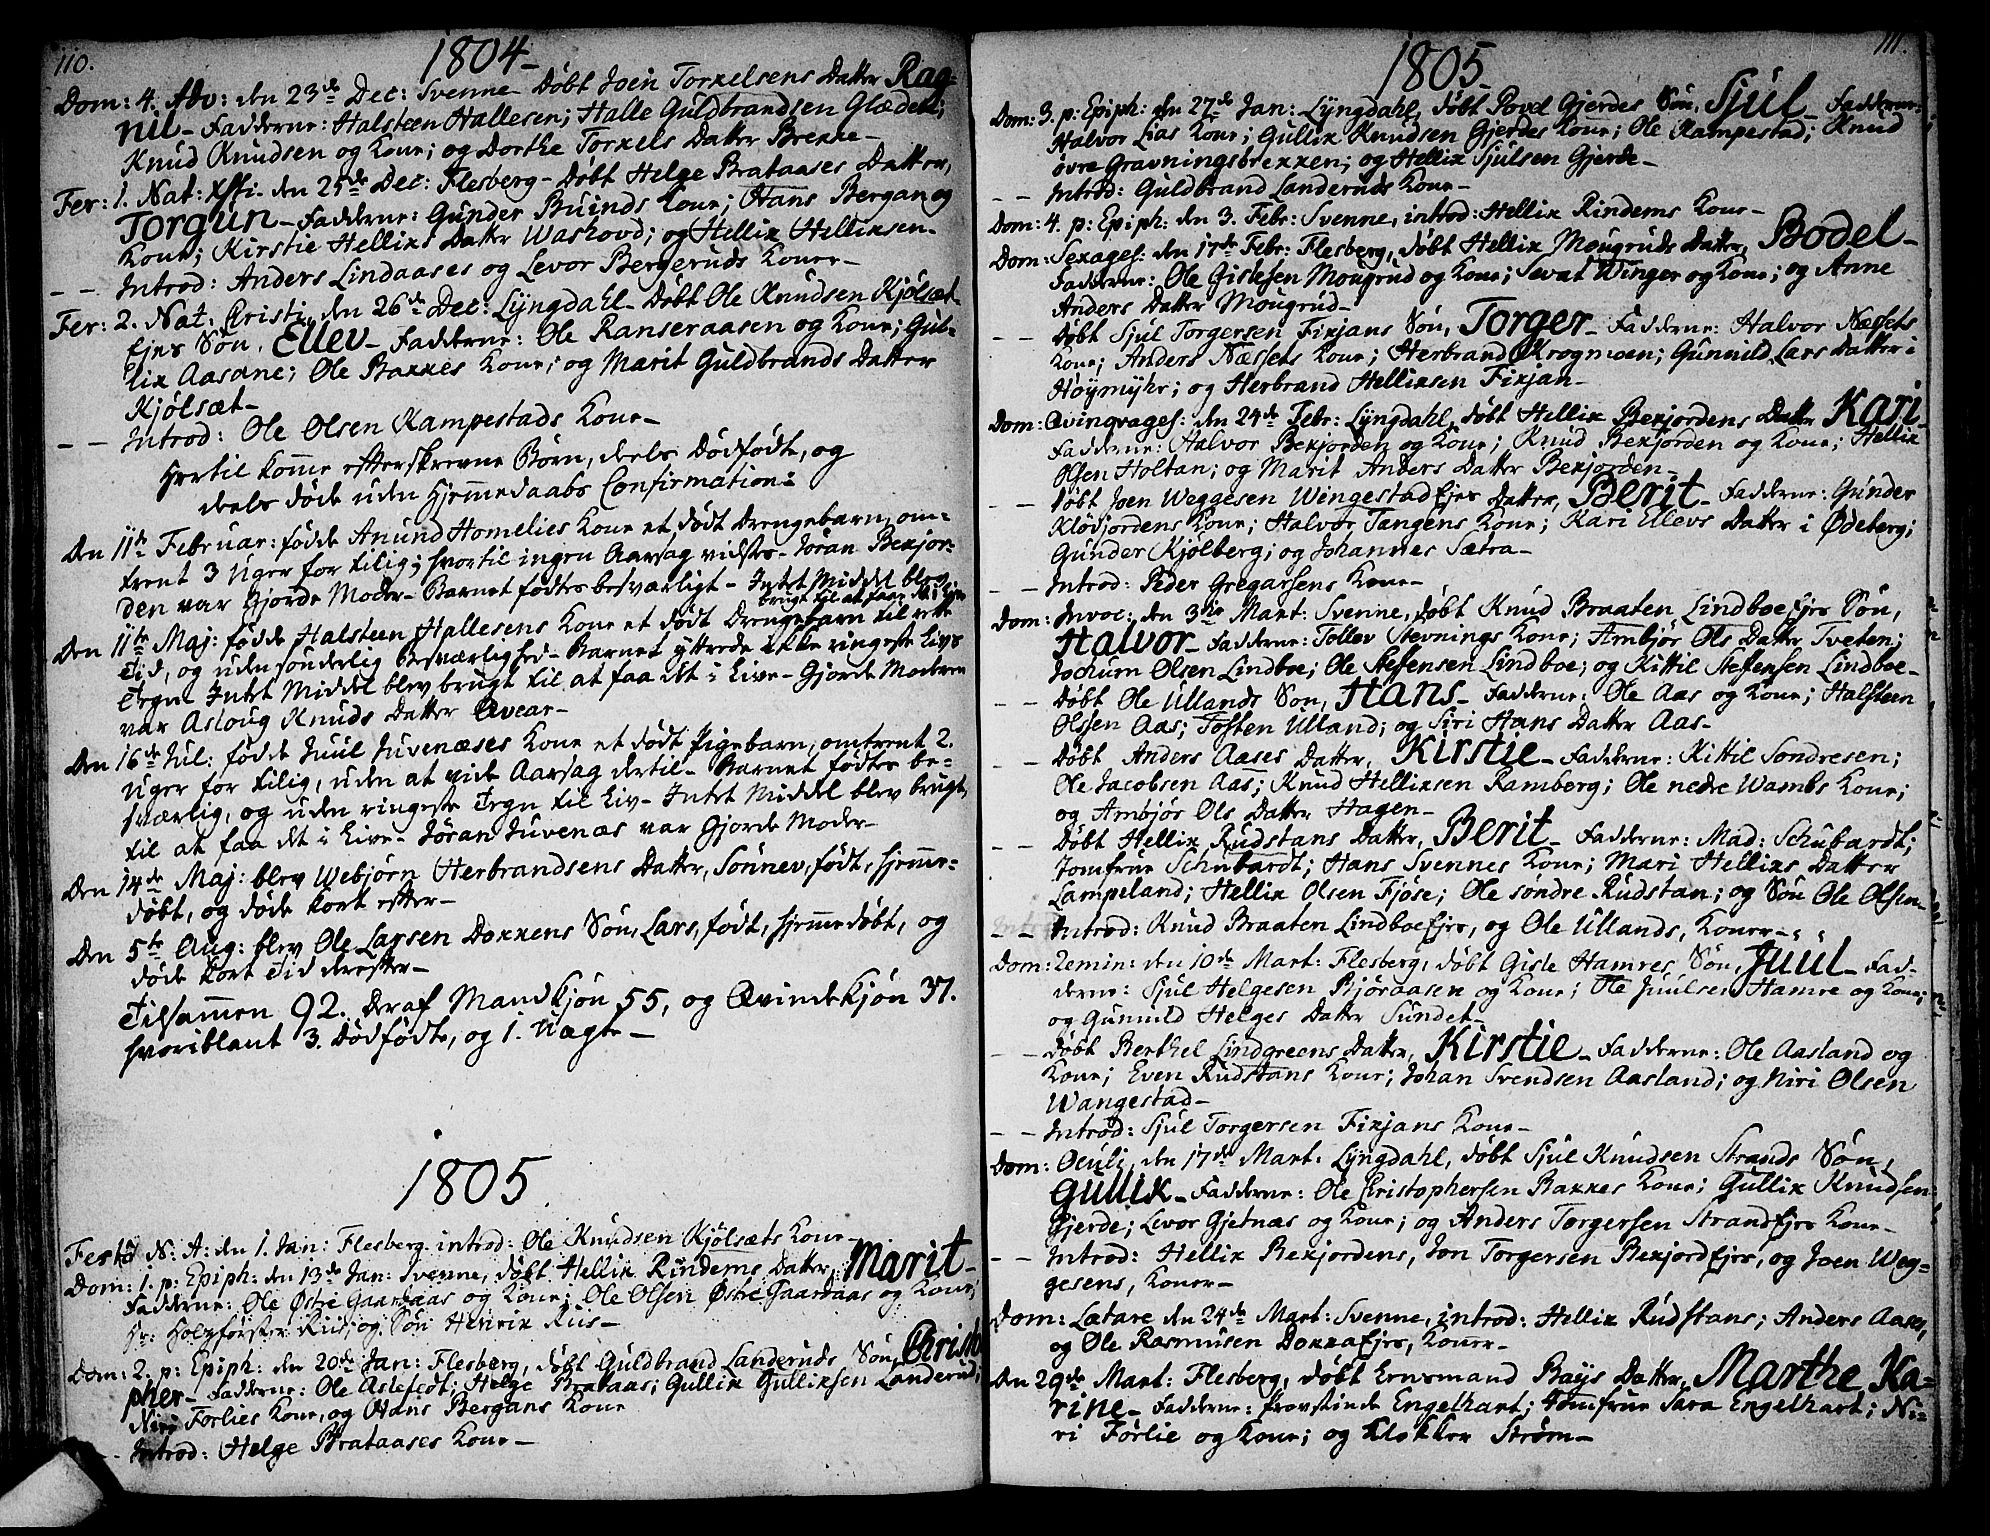 110.
1804-
Dom: 4. Adv: den 23de Dec: Svenne- døbt Joen Torkelsens Datter Rag-
nil- Fadderne: Halsteen Hallesen; Halle Guldbrandsen Glædeli;
Knud Knudsen og Kone; og Dorthe Torkels Datter Brekke-
Fer: 1. Nat: Xsti. den 25de Dec: Flesberg- døbt Helge Brataases Datter,
Torgun- Fadderne: Gunder Buinds Kone; Hans Bergan og
Kone; Kirstie Helliks Datter Waskovd; og Hellik Helliksen-
- - Introd: Anders Lindaases og Levor Bergeruds Koner-
Fer: 2. Nat: Cristi, den 26de Dec: Lyngdahl- døbt Ole Knudsen Kjølsæt-
Ejes Søn, Ellev- Fadderne: Ole Ranseraasen og Kone; Gul-
lik Aasane; Ole Bakkes Kone; og Marit Guldbrands Datter
Kjølsæt-
- - Introd: Ole Olsen Kampestads Kone-
Hertil komme efterskrevne Børn, deels dødfødte, og
deels døde uden Hjemmedaabs Confirmation:
Den 11te Februar: fødde Anund Homelies Kone et dødt Drengebarn, om-
trent 3 Uger for tilig; hvortil ingen Aarsag vidstes- Jøran Bekjor-
den var Gjorde Moder- Barnet fødtes besværligt- Intet Middel blev
brugt til at faae det i Live
Den 11te Maj: fødde Halsteen Hallesens Kone et dødt Drengebarn til rette
Tid, og uden sønderlig besværlighed- Barnet yttrede ikke ringeste Livs
Tegn. Intet Middel blev brugt til at faa det i Live- Gjorde Moderen
var Asloug Knuds Datter Qvear-
Den 16de Jul: fødde Juul Juvenæses Kone et dødt Pigebarn, omtrent 2.
Uger for tilig, uden at vide Aarsag dertil- Barnet fødtes be-
sværlig, og uden ringeste Tegn til Liv- Intet Middel blev brugt
til at faa det i Live- Jøran Juvenæs var Gjorde Moder-
Den 14de Maj: blev Webjørn Herbrandsens Datter, Sønnev, født, hjemme-
døbt, og døde kort efter-
Den 5te Aug: blev Ole Larsen Dokkens Søn, Lars, født, hjemmedøbt, og
døde kort Tid derefter-
Tilsammen 92. Deraf Mandkjøn 55, og Qvindekjøn 37.
hvoriblant 3. dødfødte, og 1. Uægte-
1805
Festo N: A: den 1. Jan: Flesberg. introd: Ole Knudsen Kjølsæts Kone-
Dom: 1. p: Epiph: den 13de Jan: Svenne, døbt Hellik Rindems Datter, Marit-
Fadderne: Ole Østre Gaardaas og Kone; Ole Olsen Østre Gaardaas og Kone;
Hr: Holzførster Riis; og Søn Henrik Riis-
Dom: 2. p: Epiph: den 20de Jan: Flesberg, døbt Guldbrand Landeruds Søn, Christo
pher- Fadderne: Ole Aslefæt; Helge Brataas; Gullik Gulliksen Landerud;
Niri Forlies Kone, og Hans Bergans Kone
- Introd: Helge Brataases Kone-
111.
1805
Dom: 3. p: Epiph: den 27de Jan: Lyngdahl, døbt Povel Gjerdes Søn, Sjul- Fadderne:
Halvor Lias Kone; Gullik Knudsen Gjerdes Kone; Ole Kampestad; Knud
øvre Gravningsbrekken; og Hellik Sjulsen Gjerde-
- - Introd: Guldbrand Landeruds Kone-
Dom: 4. p: Epiph: den 3. Febr: Svenne, introd: Hellik Rindems Kone-
Dom: Sexages: den 17de Febr: Flesberg, døbt Hellik Mougruds Datter, Bodel-
Fadderne: Ole Gislesen Mougrud og Kone; Sevat Winger og Kone; og Anne
Anders Datter Mougrud-
- - Døbt Sjul Torgersen Fixjans Søn, Torger- Fadderne: Halvor Næssets
Kone; Anders Næssets Kone; Herbrand Krogmoen; Gunnild Lars Datter i
Høymyhr; og Herbrand Helliksen Fixjan-
Dom: Qvinqvages: den 24de Febr: Lyngdahl, døbt Hellik Bekjordens Datter Kari-
Fadderne: Halvor Bekjorden og Kone; Knud Bekjorden og Kone; Hellik
Olsen Holtan; og Marit Anders Datter Bekjorden-
- - Døbt Joen Weggesen WingestadEjes Datter, Berit- Fadderne: Gunder
Kløvjordens Kone; Halvor Tangens Kone; Kari Elevs Datter i Ødeberg;
Gunder Kjølberg; og Johannes Sætra-
- - Introd: Peder Gregarsens Kone-
Dom: Invoc: den 3die Mart: Svenne, døbt Knud Braaten LindboeEjes Søn,
Halvor- Fadderne: Tollev Stevnings Kone; Ambjør Ols Datter Tveten;
Jochum Olsen Lindboe; Ole Steffensen Lindboe; og Kittil Steffensen Lindboe-
- - Døbt Ole Ullands Søn, Hans- Fadderne: Ole Aas og Kone; Halsteen
Olsen Aas; Tosten Ulland; og Siri Hans Datter Aas-
- - Døbt Anders Aases Datter, Kirstie- Fadderne: Kittil Sondresen;
Ole Jacobsen Aas; Knud Helliksen Ramberg; Ole nedre Wambs Kone;
og Ambjør Ols Datter Hagen-
- - Døbt Hellik Rudstans Datter, Berit- Fadderne: Mad: Schubardt;
Jomfrue Schubardt; Hans Svennes Kone; Mari Helliks Datter
Lampeland; Hellik Olsen Fjøse; Ole søndre Rudstan; og Søn Ole Olsen-
- - Introd: Knud Braaten LindboeEjes, og Ole Ullands, Koner-
Dom: Remin: den 10de Mart: Flesberg, døbt Gisle Hamres Søn, Juul- Fad-
derne: Sjul Helgesen Bjøraasen og Kone; Ole Juulsen Hamre og Kone;
og Gunnild Helges Datter Sundet-
- - Døbt Berthel Lindgreens Datter, Kirstie- Fadderne: Ole Aasland og
Kone; Even Rudstans Kone; Johan Svendsen Aasland; og Niri Olsen
Wangestad-
- - Introd: Sjul Torgersen Fixjans Kone-
Dom: Oculi, den 17de Mart: Lyngdahl, døbt Sjul Knudsen Strands Søn,
Gullik- Fadderne: Ole Christophersen Bakkes Kone; Gullik Knudsen
Gjerde; Levor Gjetnæs og Kone; og Anders Torgersen StrandEjes Kone-
- - Introd: Hellik Bekjordens, Jon Torgersen BekjordEjes, og Joen Weg-
gesens, Koner-
Dom: Lætare den 24de Mart: Svenne, introd: Hellik Rudstans; Anders Aases,
og Ole Rasmusen DokkaEjes, Koner-
Den 29de Mart: Flesberg, døbt Ernsmand Bays Datter, Marthe Ka-
rine- Fadderne: Provstinde Engelhart; Jomfrue Sara Engelhart; Ni-
ri Førlie og Kone; og Klokker Strøm-